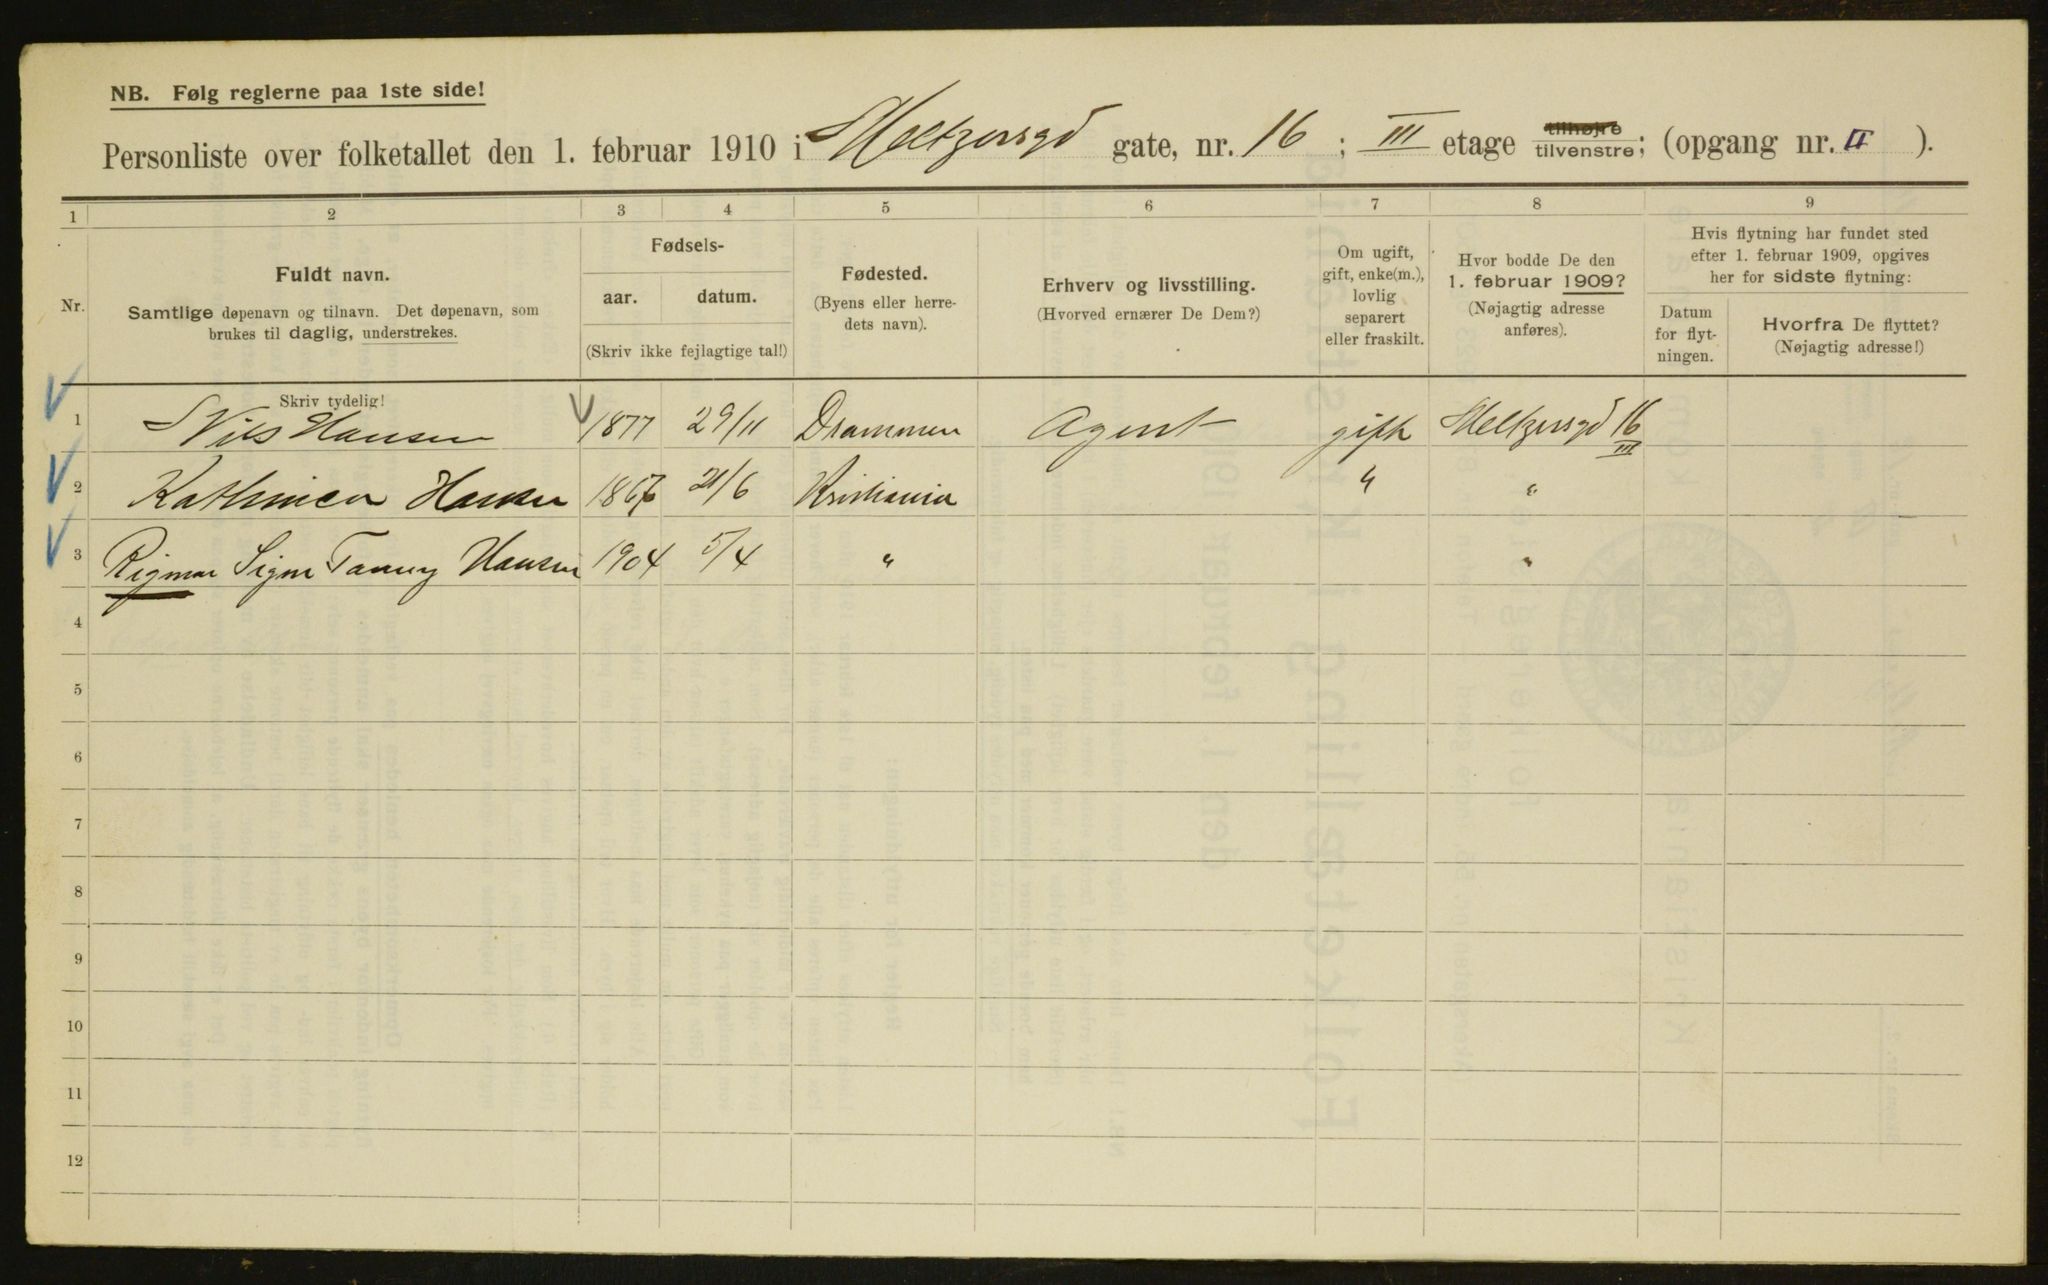 NB. Følg reglerne paa 1ste side!
Personliste over folketallet den 1. februar 1910 i Meltzersgd gate, nr. 16 ; III etage tilhøjre tilvenstre; (opgang nr. II ).
1 2 3 4 5 6 7 8 9
Nr.
Fuldt navn.
Samtlige døpenavn og tilnavn. Det døpenavn, som
brukes til daglig, understrekes.
Fødsels-
aar. datum.
(Skriv ikke fejlagtige tal!)
Fødested.
(Byens eller herre-
dets navn).
Erhverv og livsstilling.
(Hvorved ernærer De Dem?)
Om ugift,
gift, enke(m.),
lovlig
separert
eller fraskilt.
Hvor bodde De den
1. februar 1909?
(Nøjagtig adresse
anføres).
Hvis flytning har fundet sted
efter 1. februar 1909, opgives
her for sidste flytning:
Datum
for flyt-
ningen.
Hvorfra De flyttet?
(Nøjagtig adresse!)
Skriv tydelig!
1 Nils Hansen 1877 29/11 Drammen Agent gift Meltzersgd 16 III
2 Hansen 21/6 Kristiania " "
3 Rigmor Signe Fanny Hansen 1904 5/4 " "
4
5
6
7
8
9
10
11
12